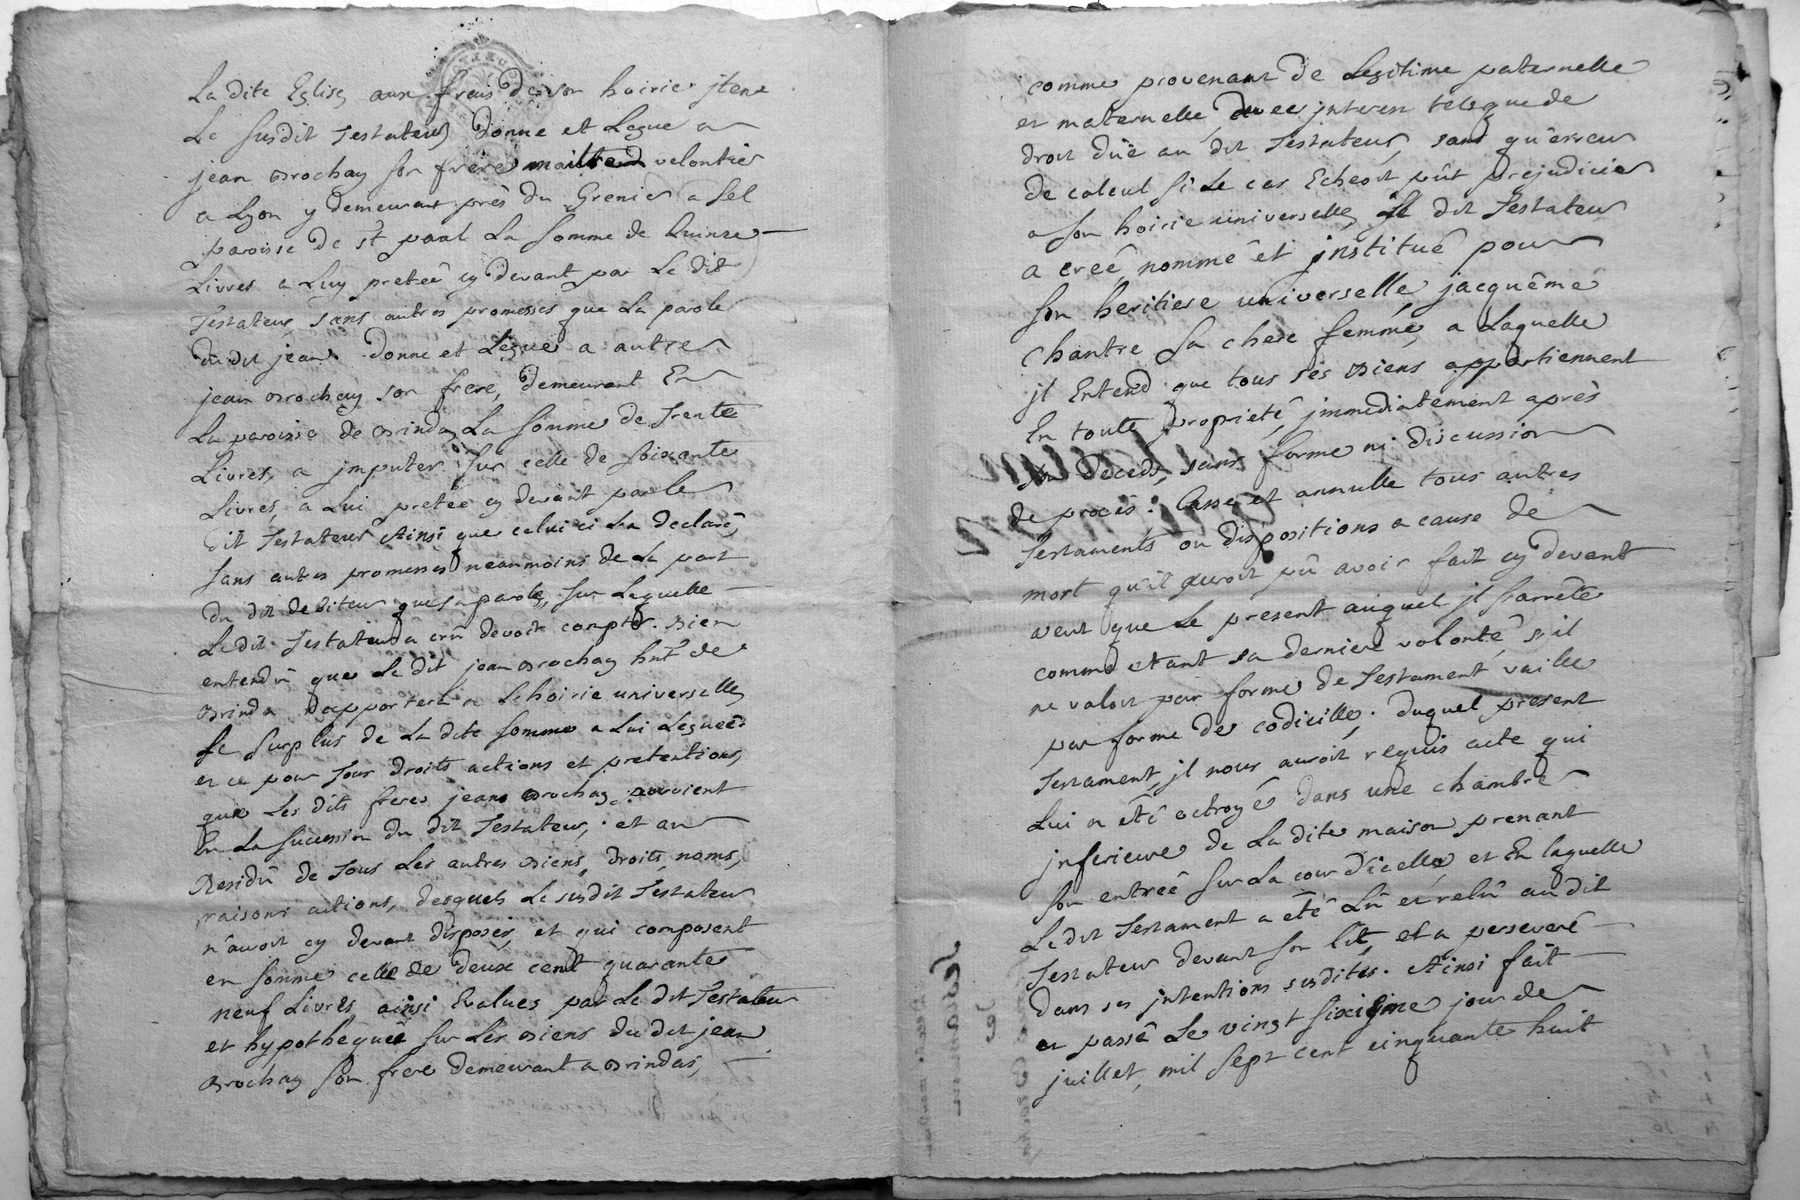 La dite Eglise, aux frais de son hoirie, jtem
Le susdit Testateur, donne et Legue a
jean Brochay son frere maitre veloutier
a Lyon y demeurant près du Grenier a sel
paroisse de st paul La somme de Quinze
Livres a Luy pretée cy devant par Le dit
Testateur, sans autres promesses que La parole
du dit jean. donne et Legue a autre
jean Brochay son frere, demeurant En
La paroisse de Brindas La somme de Trente
Livres, a jmputer sur celle de soixante
Livres, a Lui pretée cy devant par le
dit Testateur Ainsi que celui ci L'a declaré,
sans autres promesses neanmoins de La part
du dit debiteur que sa parole, sur Laquelle
Le dit Testateur a crû devoir compter. bien
entendû que Le dit jean Brochay hnt de
Brindas rapportera a L'hoirie universelle,
Le surplus de La dite somme a Lui Leguée
et ce pour tous droits actions et pretentions,
que Les dits freres jean Brochay auroient
En La sucession du dit Testateur; et au
Residû de tous Les autres Biens, droits, noms,
raisons actions, desquels Le susdit Testateur
n'auroit cy devant disposés, et qui composent
en somme celle de deux cent quarante
neuf Livres, ainsi Evalués par Le dit Testateur
et hypothequée sur Les Biens du dit jean
Brochay son frere demeurant a Brindas,
comme provenant de Legitime paternelle
et maternelle, avec jnterest telle que de
droit dûe au dit Testateur, sans qu'erreur
de calcul si Le cas Echeoit pût prejudicier
a son hoirie universelle, Le dit Testateur
a creé, nommé et jnstitué pour
son heritiere universelle jacquême
Chantre sa chere femme, a Laquelle
jl Entend que tous ses Biens appartiennent
En toute propriété, jmmediatement après
son deceds, sans forme ni discussion
de procès. Casse et annulle tous autres
Testaments ou dispositions a cause de
mort qu'il auroit pû avoir fait cy devant
veut que Le present auquel jl s'arrête
comme etant sa derniere volonté, s'il
ne valoit par forme de Testament vaille
par forme de codicille, duquel present
Testament, jl nous auroit requis acte qui
Lui a été octroyé dans une chambre
jnferieure de La dite maison prenant
son entrée sur La cour d'icelle, et En laquelle
Le dit Testament a été Lû et relû au dit
Testateur devant son lit, et a perseveré
dans ses jntentions susdites. Ainsi fait
et passé Le vingt sixieme jour de
juillet, mil sept cent cinquante huit